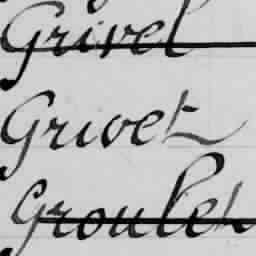 Grivel
Grivet
Groulet